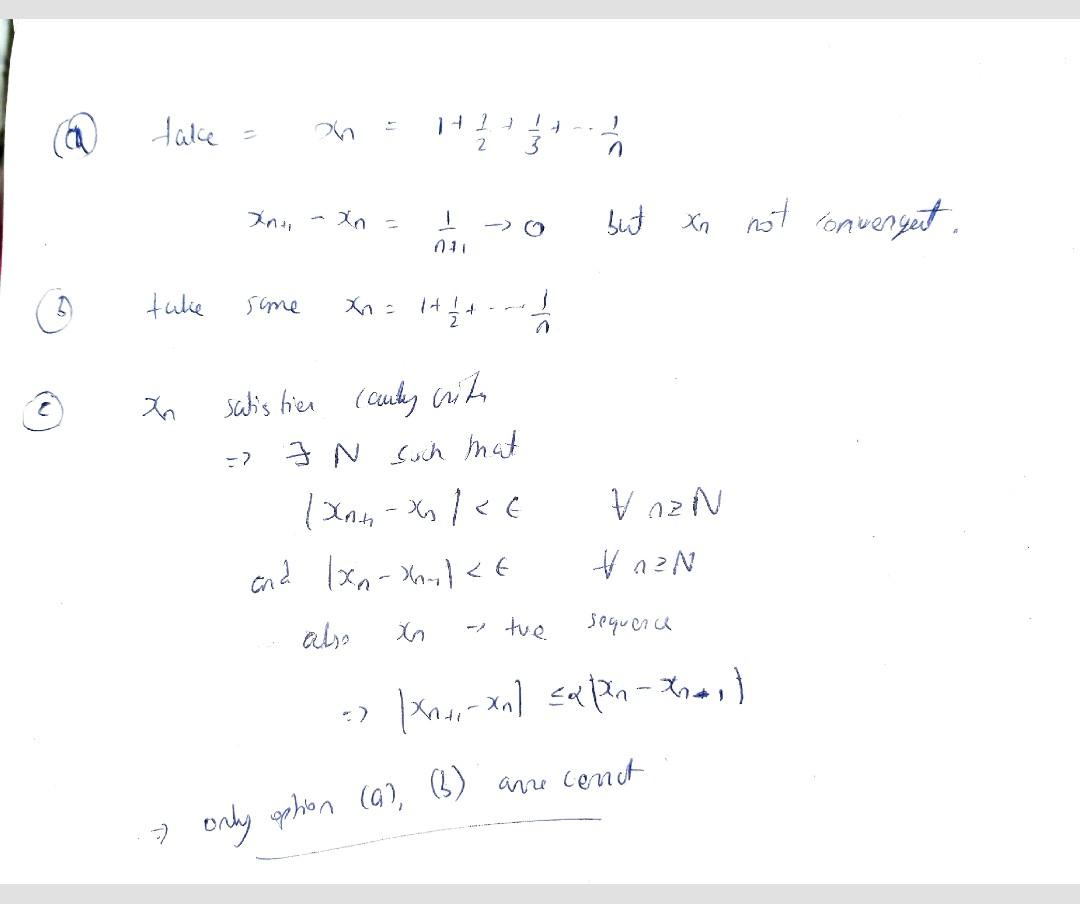 (a) take = xn = 1 + 1/2 + 1/3 + -- 1/n
xn+1 - xn = 1/n+1 -> 0 but xn not convergent.
(b) take same xn = 1 + 1/2 + --- 1/n
(c) xn satisties
=> ∃ N such that
|xn+1 - xn| < ϵ ∀ n≥N
and |xn - xn-1| < ϵ ∀ n≥N
also xn → +ve sequence
=> |xn+1 - xn| ≤ α|xn - xn-1|
=> only option (a), (b) are